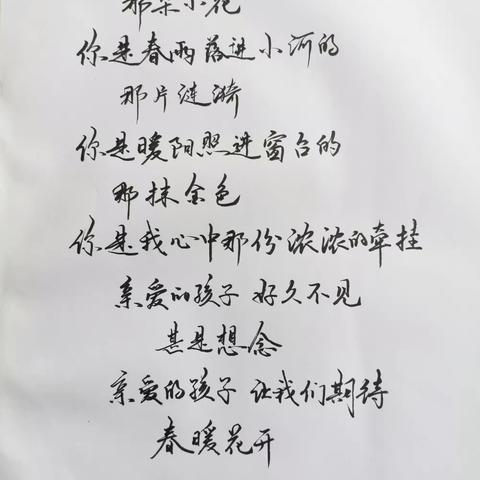 那朵小花
你是春雨落进小河的
那片涟漪
你是暖阳照进窗台的
那抹金色
你是我心中那份浓浓的牵挂
亲爱的孩子 好久不见
甚是想念
亲爱的孩子 让我们期待
春暖花开